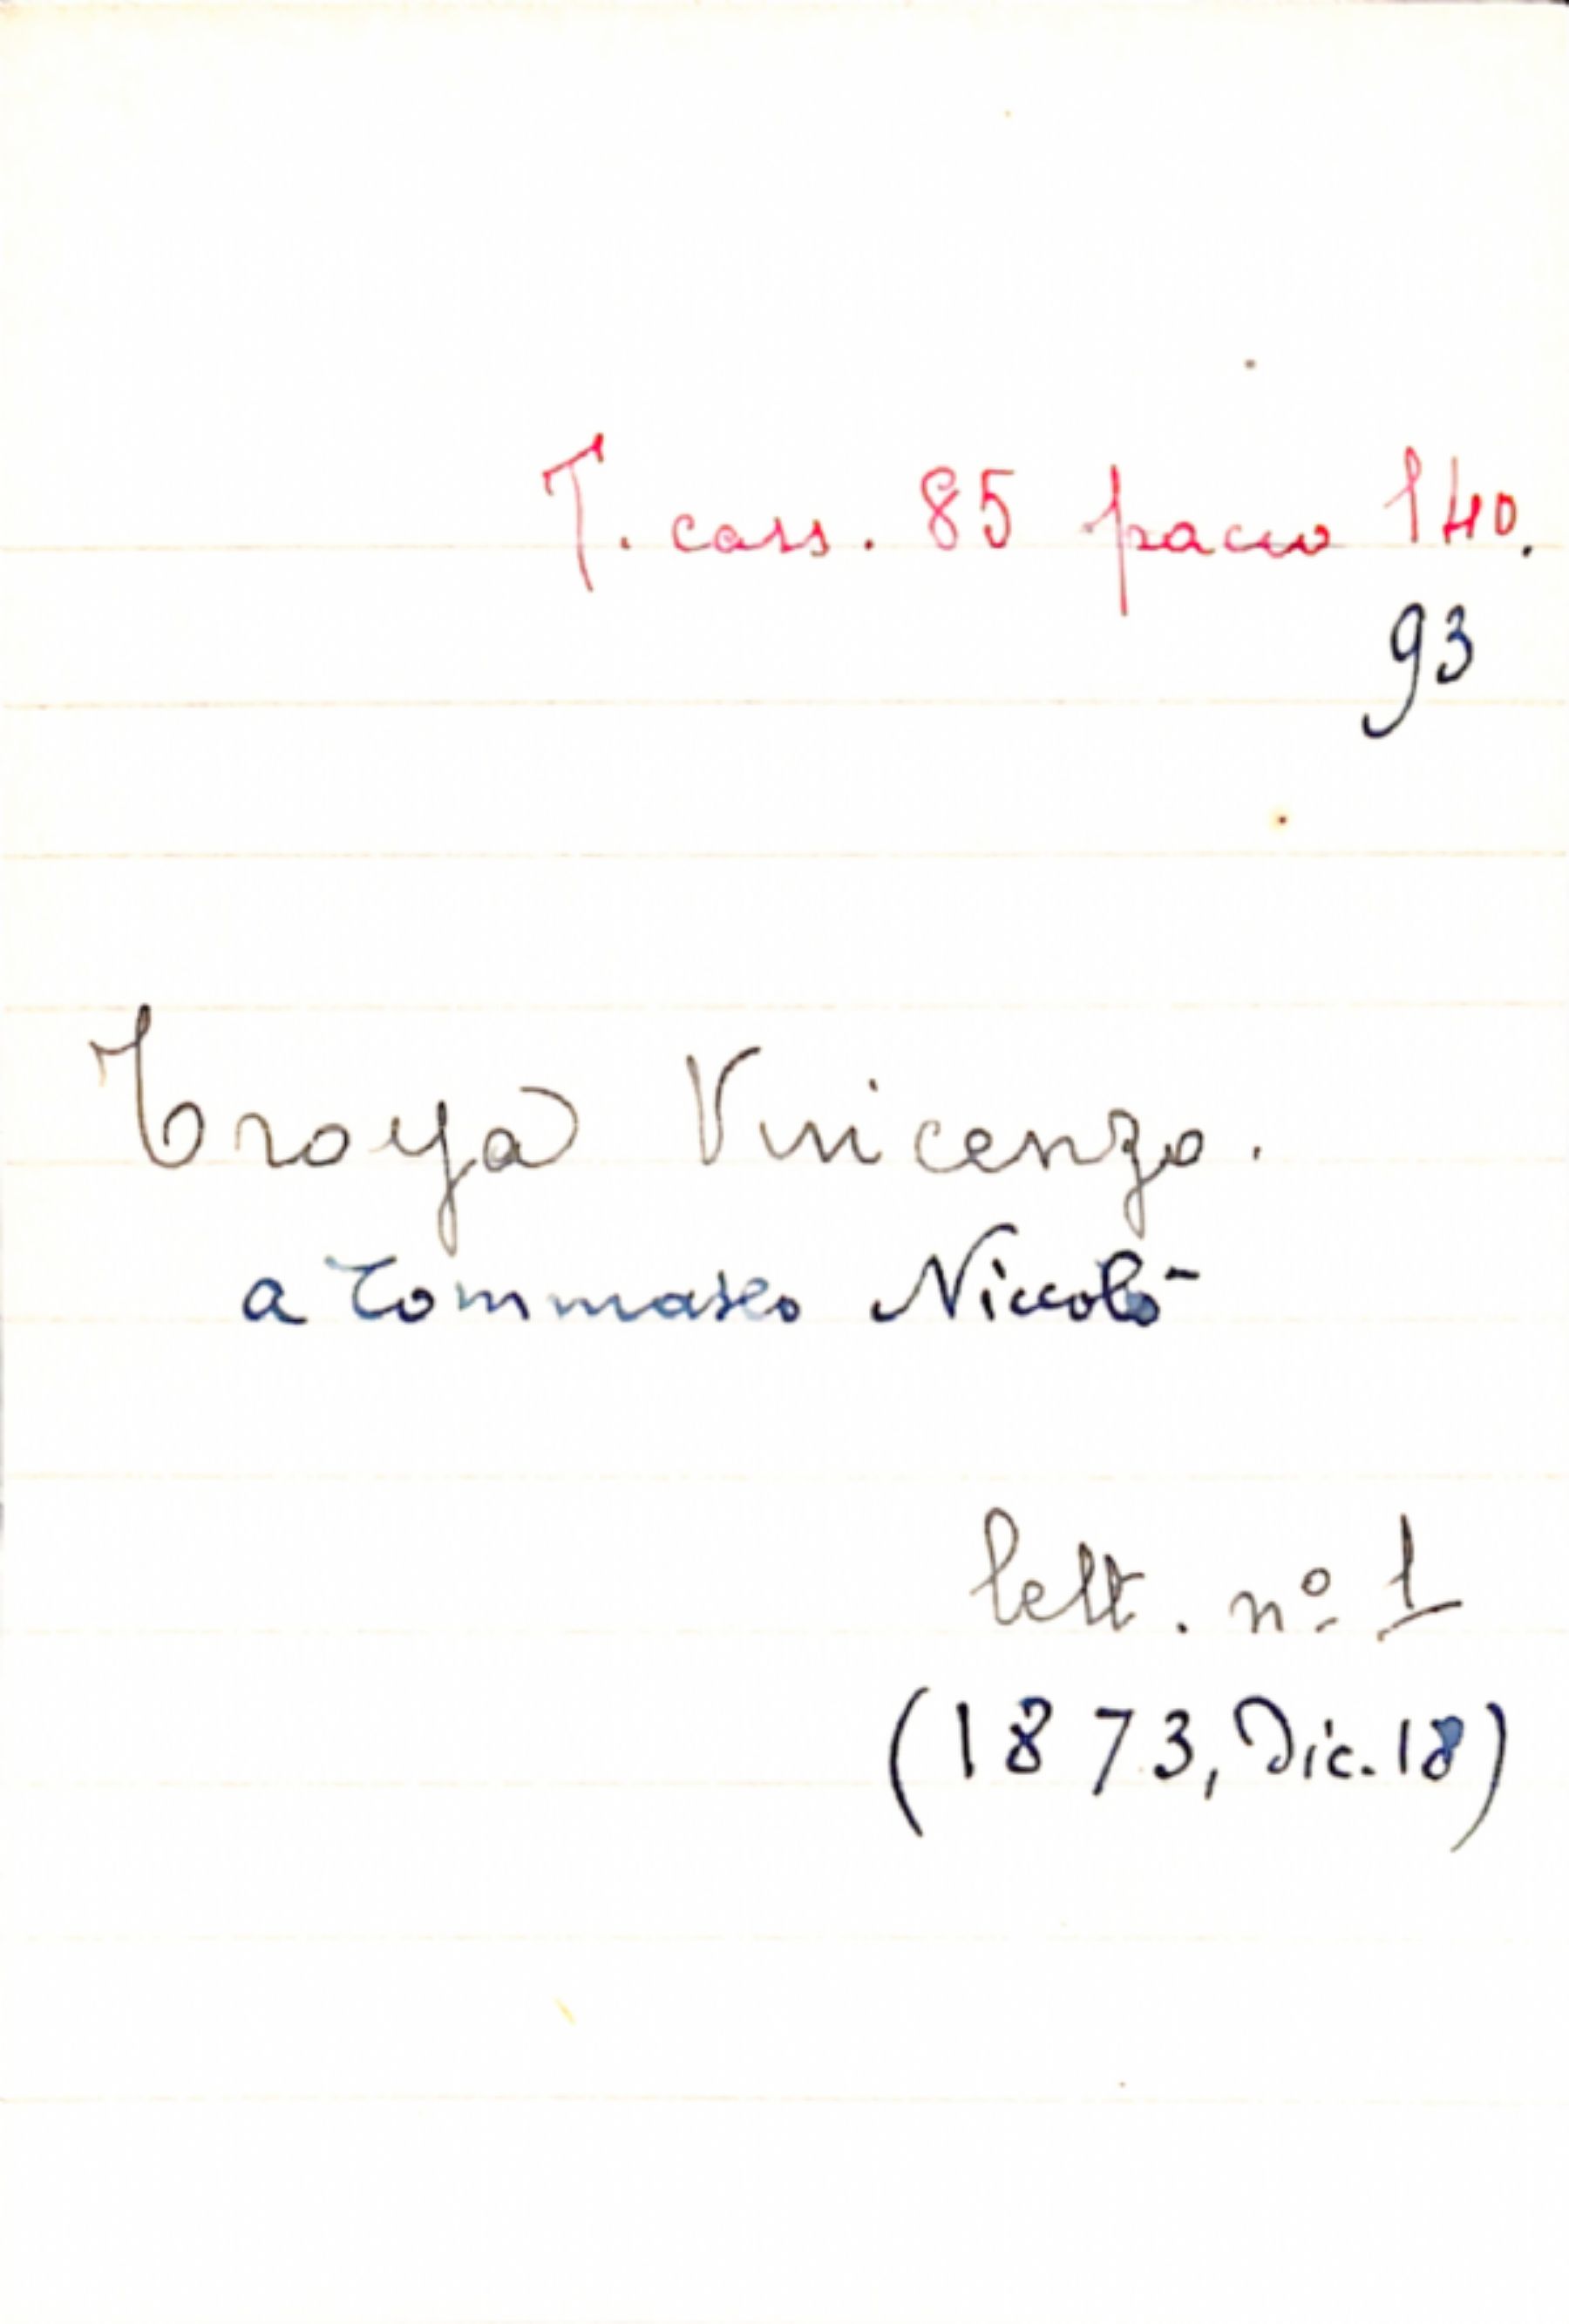 T. cass. 85 pacco 140.
93
Troya Vincenzo.
a Tommaseo Niccolò
lett. nº 1
(1873, Dic. 18)